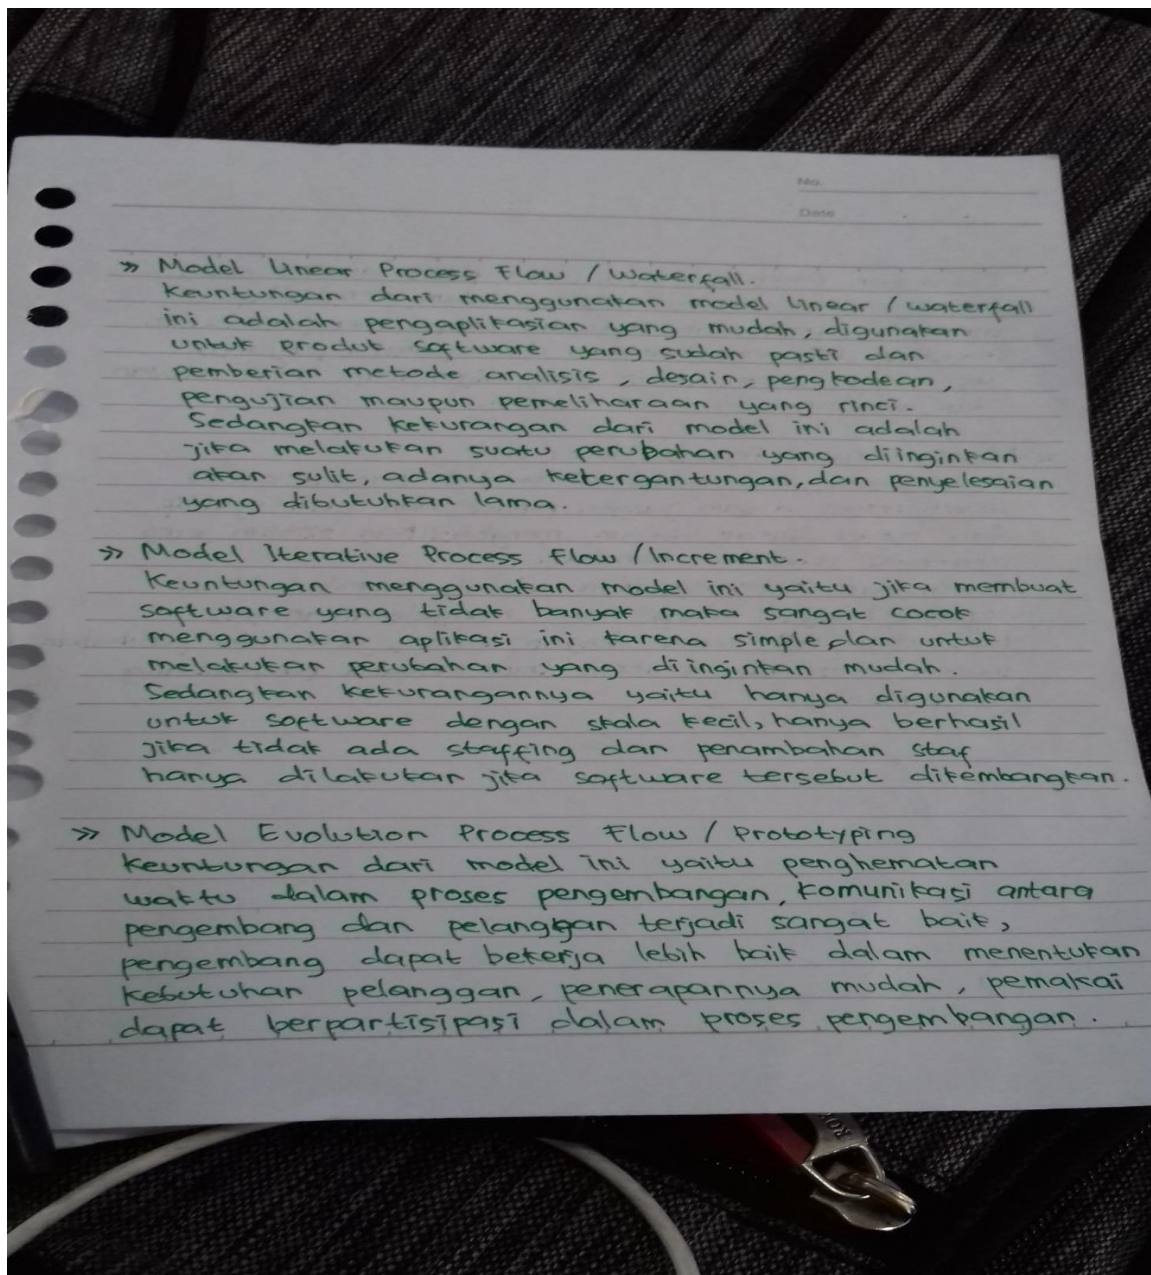 No.
Date
» Model Linear Process Flow / Waterfall.
Keuntungan dari menggunakan model linear / waterfall
ini adalah pengaplikasian yang mudah, digunakan
untuk produk software yang sudah pasti dan
pemberian metode analisis, desain, pengkodean,
pengujian maupun pemeliharaan yang rinci.
Sedangkan kekurangan dari model ini adalah
jika melakukan suatu perubahan yang diinginkan
akan sulit, adanya ketergantungan, dan penyelesaian
yang dibutuhkan lama.
» Model Iterative Process Flow / Increment.
Keuntungan menggunakan model ini yaitu jika membuat
software yang tidak banyak maka sangat cocok
menggunakan aplikasi ini karena simple dan untuk
melakukan perubahan yang diinginkan mudah.
Sedangkan kekurangannya yaitu hanya digunakan
untuk software dengan skala kecil, hanya berhasil
jika tidak ada staffing dan penambahan staf
hanya dilakukan jika software tersebut dikembangkan.
» Model Evolution Process Flow / Prototyping
Keuntungan dari model ini yaitu penghematan
waktu dalam proses pengembangan, komunikasi antara
pengembang dan pelanggan terjadi sangat baik,
pengembang dapat bekerja lebih baik dalam menentukan
kebutuhan pelanggan, penerapannya mudah, pemakai
dapat berpartisipasi dalam proses pengembangan.